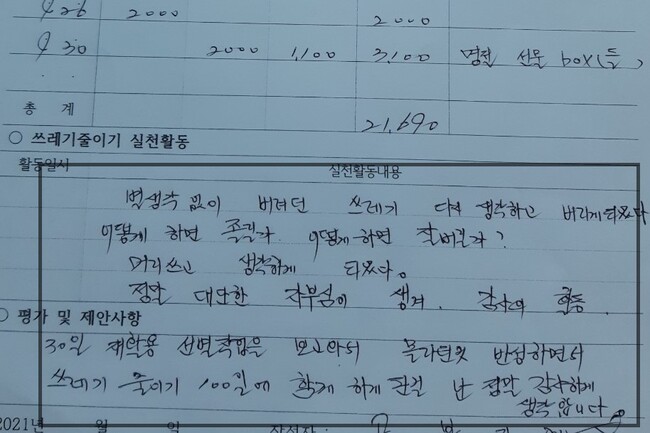 9 26 2000 2000
9 30 2000 1,100 3,100 명절 선물 box(등)
총 계 21,690
○ 쓰레기줄이기 실천활동
활동일시 실천활동내용
별생각 없이 버려던 쓰레기 다시 생각하고 버리게되었다
어떻게 하면 줄일까 어떻게하면 잘버릴까?
머리쓰고 생각하게 되었다.
정말 대단한 자부심이 생겨. 감사의 활동
○ 평가 및 제안사항
30일 재활용 선별작업을 보고와서 몰라던것 반성하면서
쓰레기 줄이기 100일에 함께 하게된걸 난 정말 감사하게
생각합니다
2021년 월 일